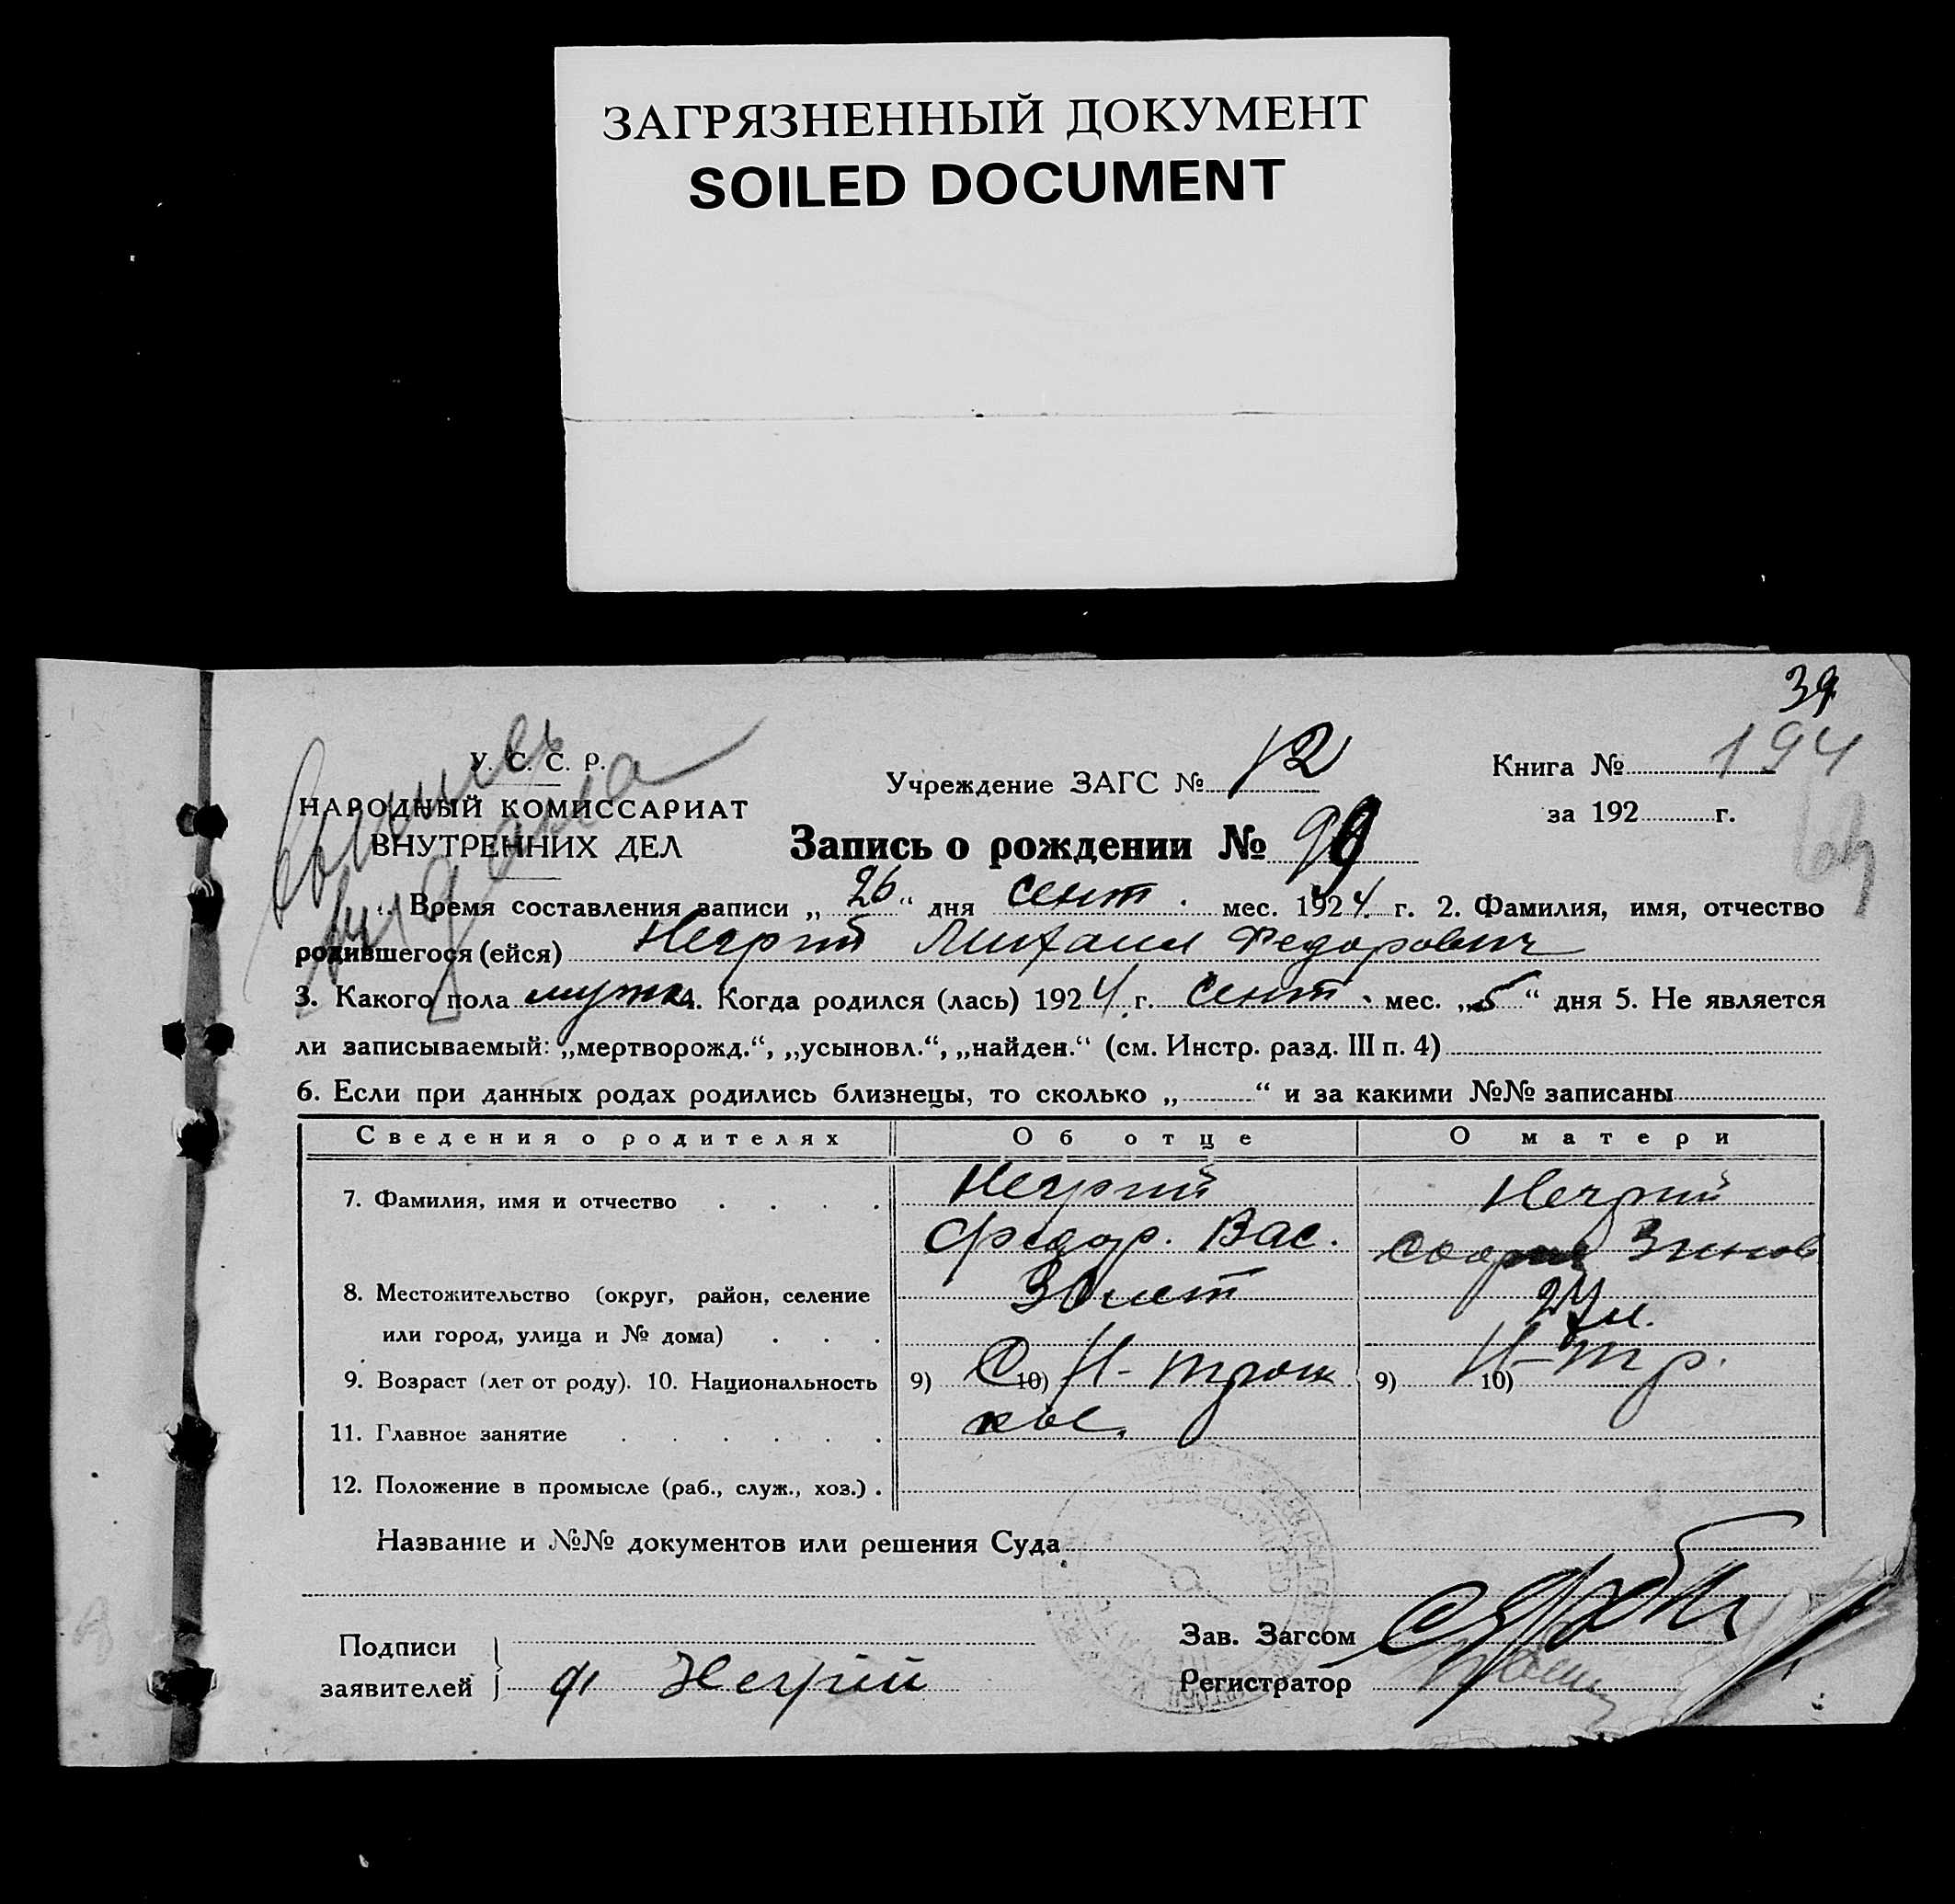 ЗАГРЯЗНЕННЫЙ ДОКУМЕНТ
SOILED DOCUMENT
39
У. С. С. Р.
НАРОДНЫЙ КОМИССАРИАТ
ВНУТРЕННИХ ДЕЛ
Учреждение ЗАГС № 12
Книга № 194
за 192 г.
Запись о рождении № 99
1. Время составления записи „26“ дня сент. мес. 1924 г. 2. Фамилия, имя, отчество
родившегося (ейся) Негрий Михаил Федорович
3. Какого пола мужс 4. Когда родился (лась) 1924 г. сент. мес. „5“ дня 5. Не является
ли записываемый: „мертворожд.“, „усыновл.“, „найден.“ (см. Инстр. разд. III п. 4)
6. Если при данных родах родились близнецы, то сколько „ “ и за какими №№ записаны
Сведения о родителях Об отце О матери
7. Фамилия, имя и отчество Негрий Негрий
Федор. Вас. София Зинов
8. Местожительство (округ, район, селение 30 лет 27 л.
или город, улица и № дома)
9. Возраст (лет от роду). 10. Национальность 9) С 10) Н-Трош 9) 10) Н-Тр.
11. Главное занятие
12. Положение в промысле (раб., служ., хоз.)
Название и №№ документов или решения Суда
Подписи
заявителей Ф Негрий
Зав. Загсом
Регистратор